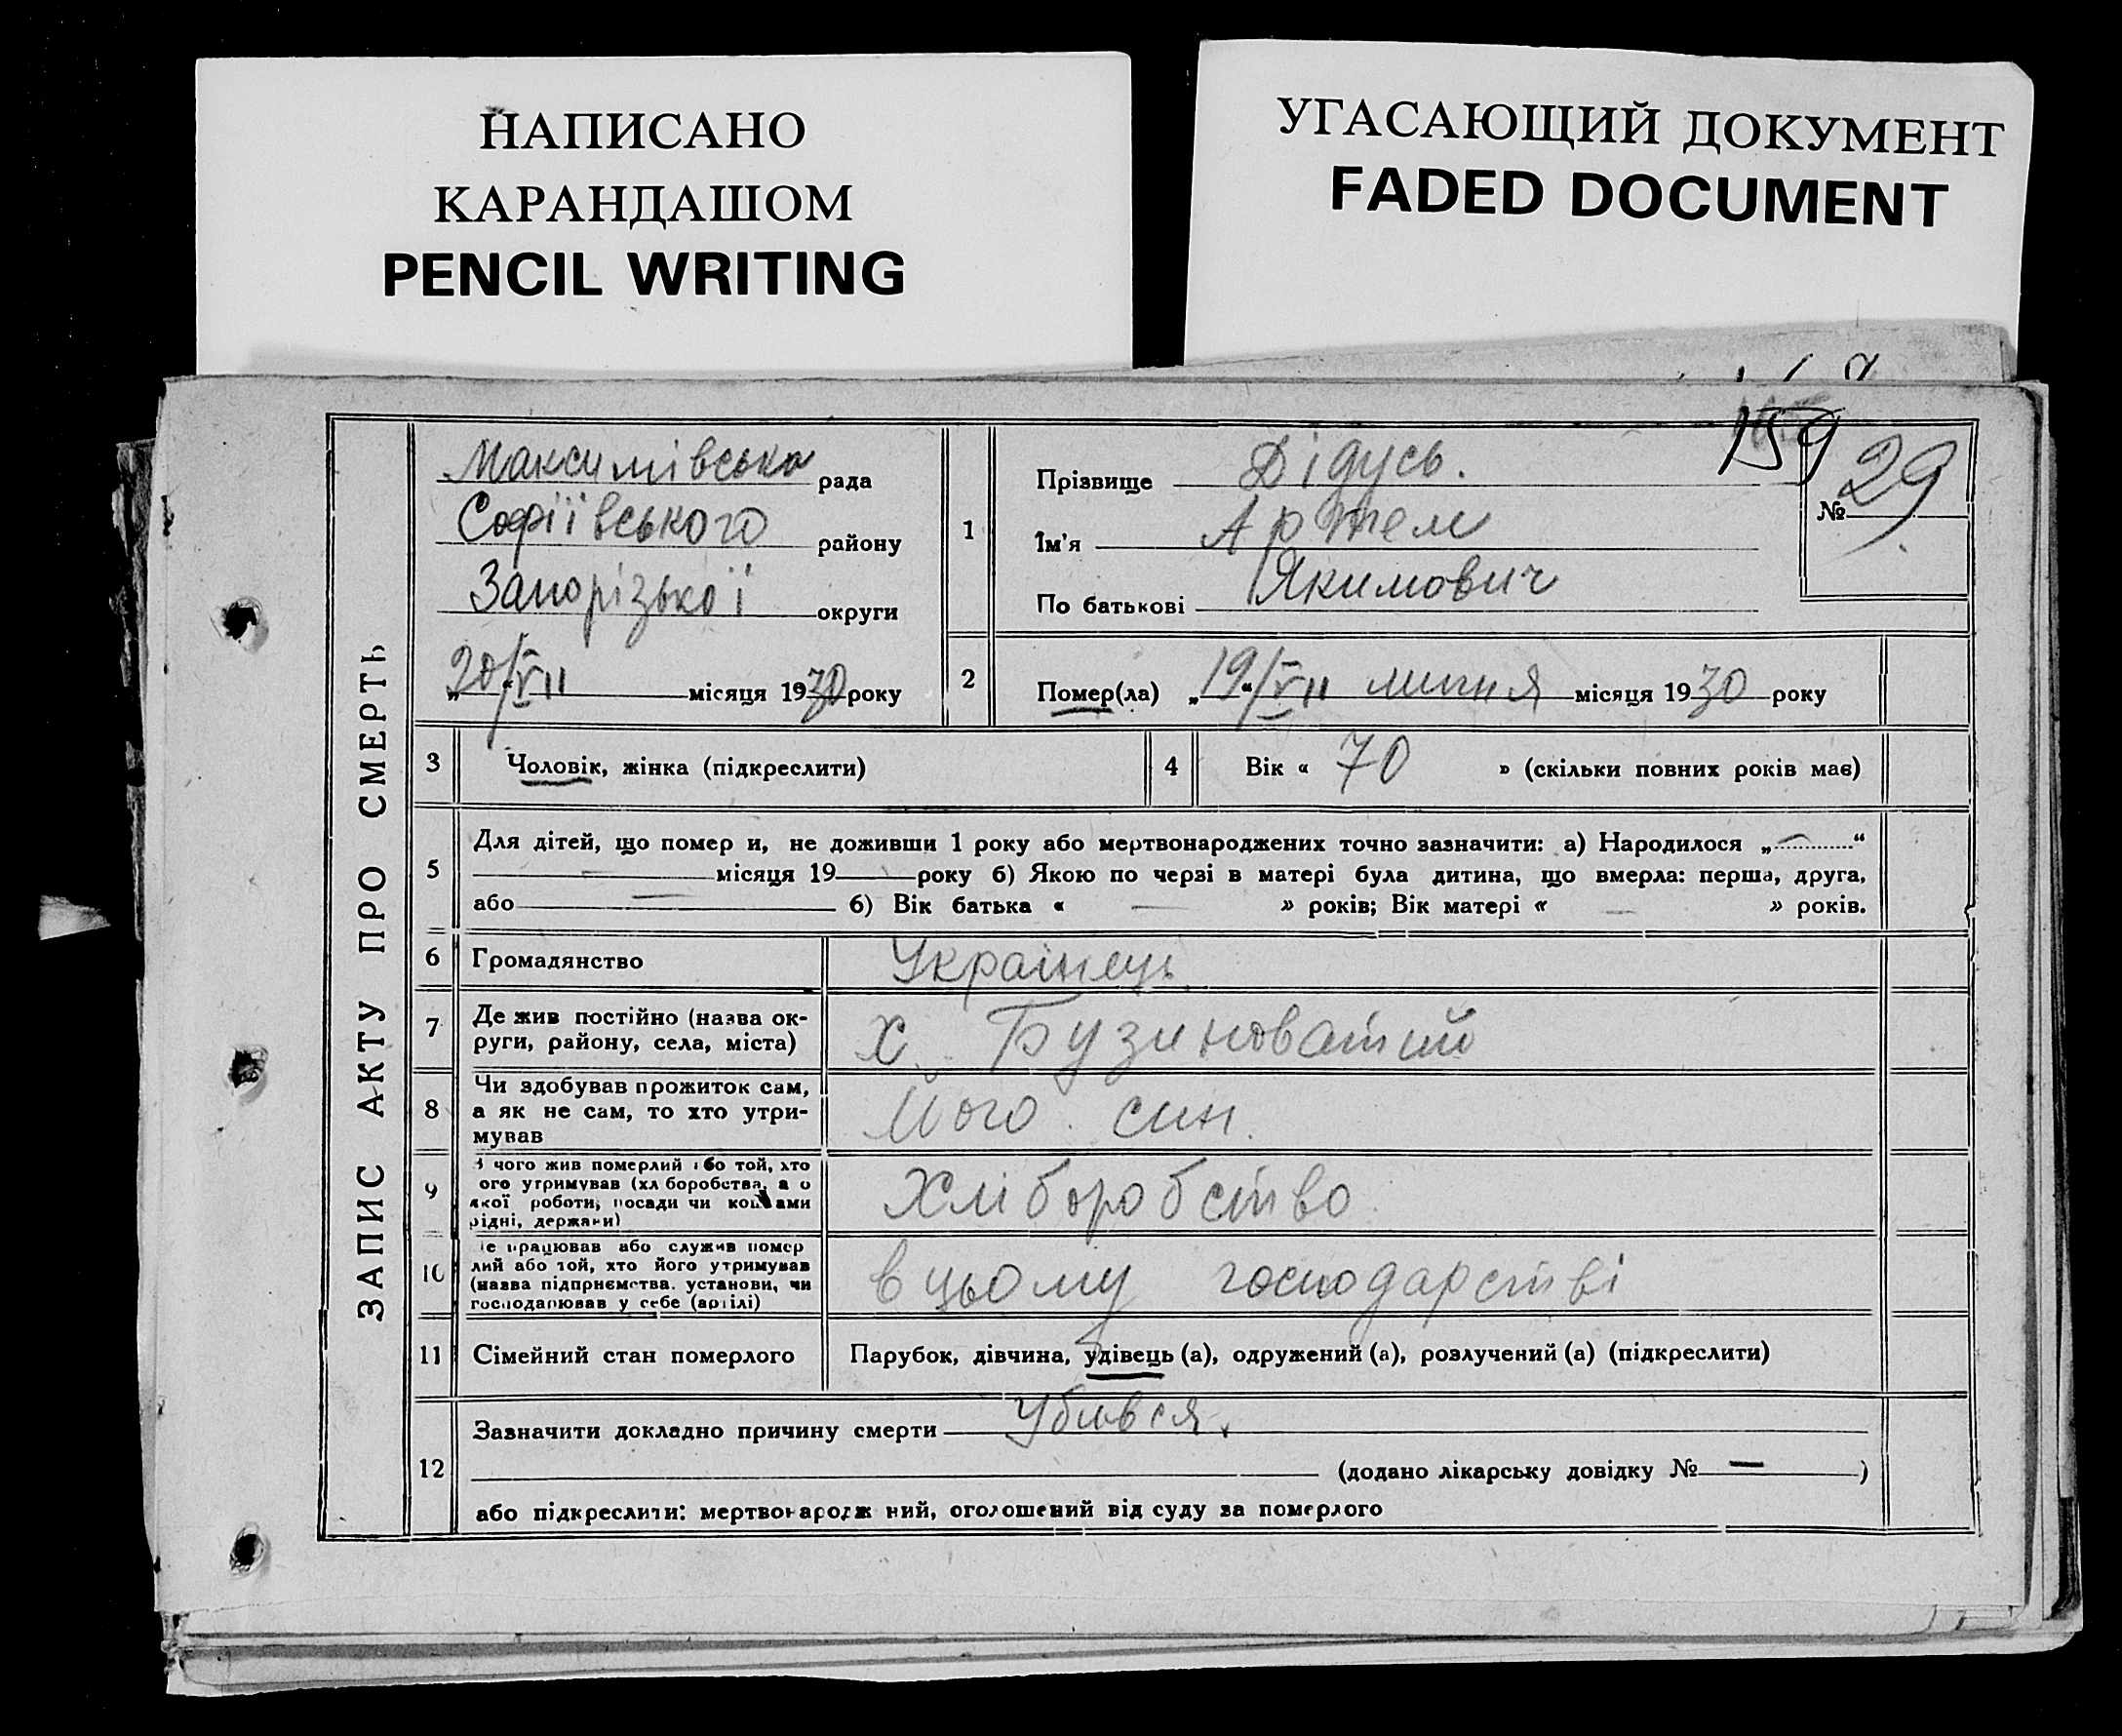 НАПИСАНО
КАРАНДАШОМ
PENCIL WRITING
УГАСАЮЩИЙ ДОКУМЕНТ
FADED DOCUMENT
159
ЗАПИС АКТУ ПРО СМЕРТЬ
Максимівська рада
Софіївського району
Запорізької округи
„20/VII“ місяця 1930 року
1
Прізвище Дідусь.
Ім'я Артем
По батькові Якимович
№ 29
2
Помер(ла) „19“/VII липня місяця 1930 року
3 Чоловік, жінка (підкреслити)
4 Вік « 70 » (скільки повних років має)
5
Для дітей, що помер и, не доживши 1 року або мертвонароджених точно зазначити: а) Народилося „—“
— місяця 19 року б) Якою по черзі в матері була дитина, що вмерла: перша, друга,
або — б) Вік батька « — » років; Вік матері « — » років.
6 Громадянство Українець
7 Де жив постійно (назва ок-
руги, району, села, міста)
х. Бузиноватий
8 Чи здобував прожиток сам,
а як не сам, то хто утри-
мував
Його син.
9 З чого жив померлий або той, хто
ого утримував (хл боробства, а о
якої роботи, посади чи коштами
рідні, держави)
Хліборобство
10 е працював або служив помер
лий або той, хто його утримував
(назва підприємства, установи, чи
господарював у себе (артілі)
в цьому господарстві
11 Сімейний стан померлого Парубок, дівчина, удівець (а), одружений (а), розлучений (а) (підкреслити)
12
Зазначити докладно причину смерти Убився.
(додано лікарську довідку № — )
або підкреслити: мертвонародж ний, оголошений від суду за померлого